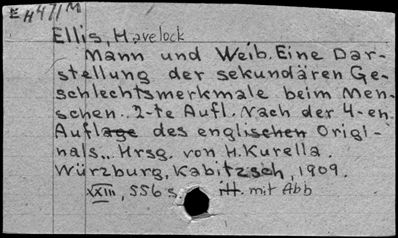 E H471M
Ellis, Havelock
Mann und Weib. Eine Dar-
stellung der sekundären Ge-
schlechtsmerkmale beim Men-
schen.. 2-te Aufl. Nach der 4-en
Auflage des englischen Origi-
nals... Hrsg. von H. Kurella.
Würzburg, Kabitzsch, 1909.
XXIII, 556 s. ill. mit Abb